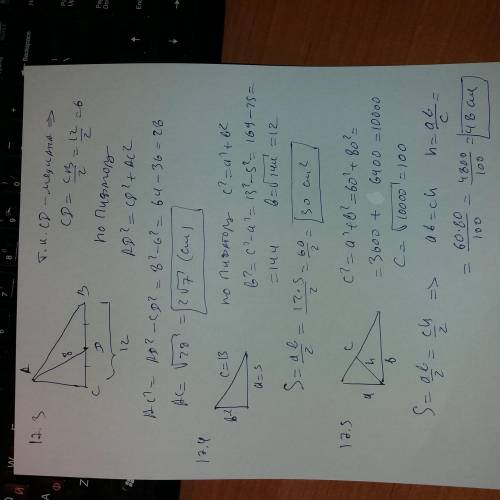 17.3
A
8
C
D
B
12
т.к. CD – медиана ⇒
CD = CB/2 = 12/2 = 6
по Пифагору
AD² = CD² + AC²
AC² = AD² – CD² = 8² – 6² = 64 – 36 = 28
AC = √28 = 2√7 (см)
17.4
b²
c=13
a=5
по Пифагору c² = a² + b²
b² = c² – a² = 13² – 5² = 169 – 25 =
= 144 b = √144 = 12
S = ab/2 = 12·5/2 = 60/2 = 30 см²
17.5
a
c
h
b
c² = a² + b² = 60² + 80² =
= 3600 + 6400 = 10000
c = √10000 = 100
S = ab/2 = ch/2 ⇒ ab = ch h = ab/c =
= 60·80/100 = 4800/100 = 48 см